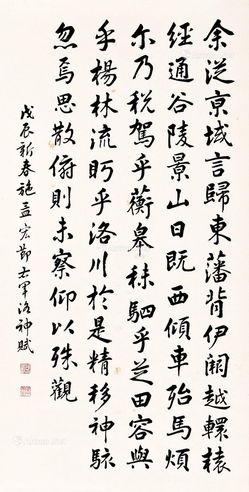 余從京域言歸東藩背伊闕越轘轅
經通谷陵景山日既西傾車殆馬煩
尔乃稅駕乎蘅皋秣駟乎芝田容與
乎楊林流眄乎洛川於是精移神駭
忽焉思散俯則未察仰以殊觀
戊辰新春 孟宏節士軍洛神賦